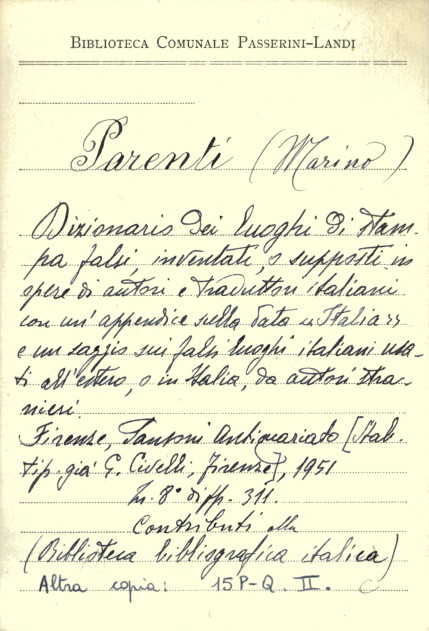 BIBLIOTECA COMUNALE PASSERINI-LANDI
Parenti (Marino)
Dizionario dei luoghi di stam-
pa falsi, inventati, o supposti in
opere di autori e traduttori italiani
con un'appendice sulla data "Italia"
e un saggio sui falsi luoghi italiani usa-
ti all'estero, o in Italia, da autori stra-
nieri.
Firenze, Sansoni Antiquariato [Stab.
tip. già G. Civelli, Firenze], 1951
In. 8° di pp. 311.
Contributi alla
(Biblioteca bibliografica italica)
Altra copia: 15 P-Q. II.